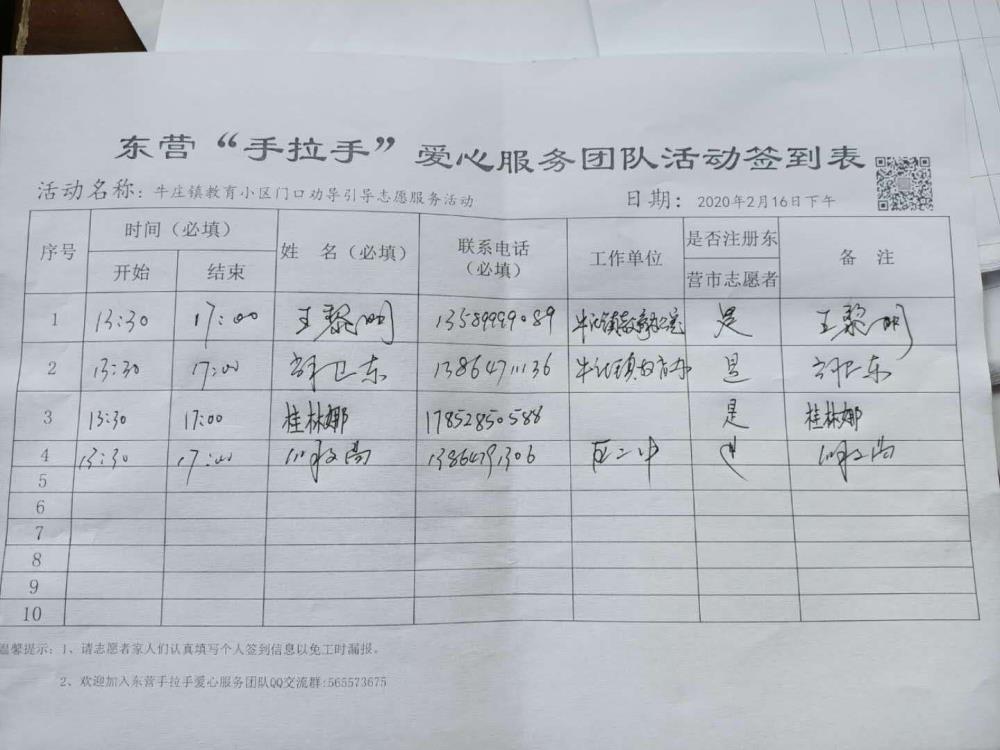 东营“手拉手”爱心服务团队活动签到表
活动名称：牛庄镇教育小区门口劝导引导志愿服务活动 日期：2020年2月16日下午
序号 时间（必填） 姓 名（必填） 联系电话（必填） 工作单位 是否注册东营市志愿者 备 注
开始 结束
1 13:30 17:00 王黎明 13589999089 牛庄镇 是 王黎明
2 13:30 17:00 卫东 13864711136 牛庄镇教育办 是 卫东
3 13:30 17:00 桂林娜 17852850588 是 桂林娜
4 13:30 17:00 二中 是
5
6
7
8
9
10
温馨提示：1、请志愿者家人们认真填写个人签到信息以免工时漏报。
2、欢迎加入东营手拉手爱心服务团队QQ交流群:565573675